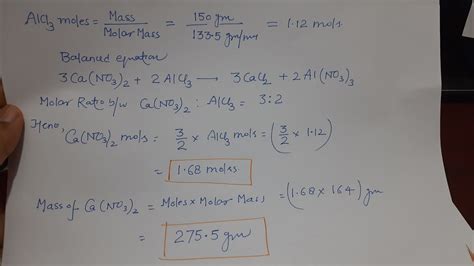 AlCl3 moles = Mass / Molar Mass = 150 gm / 133.5 gm/mol = 1.12 mol
Balanced equation
3Ca(NO3)2 + 2AlCl3 → 3CaCl2 + 2Al(NO3)3
Molar Ratio b/w Ca(NO3)2 : AlCl3 = 3:2
Hence, Ca(NO3)2 mols = 3/2 × AlCl3 mols = (3/2 × 1.12)
= 1.68 moles
Mass of Ca(NO3)2 = Moles × Molar Mass = (1.68 × 164) gm
= 275.5 gm